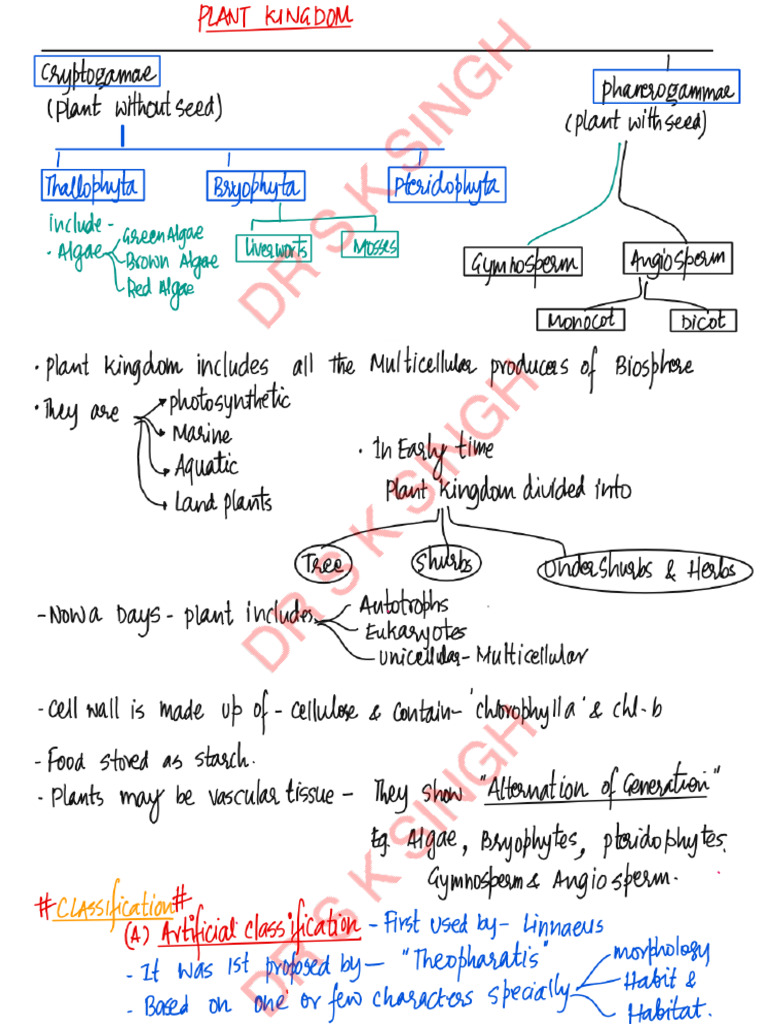 PLANT KINGDOM
Cryptogamae
(Plant without seed)
Phanerogammae
(Plant with seed)
Thallophyta
Bryophyta
Pteridophyta
include -
• Algae
Green Algae
Brown Algae
Red Algae
Liverworts
Mosses
Gymnosperm
Angiosperm
Monocot
Dicot
• Plant kingdom includes all the Multicellular producers of Biosphere
• They are
photosynthetic
Marine
Aquatic
Land plants
• In Early time
Plant Kingdom divided into
Tree
Shurbs
Undershurbs & Herbs
- Now a Days - plant includes
Autotrophs
Eukaryotes
Unicellular - Multicellular
- Cell wall is made up of - cellulose & contain - 'chlorophyll a' & chl-b
- Food stored as starch.
- Plants may be vascular tissue - They show "Alternation of Generation"
Eg. Algae, Bryophytes, pteridophytes.
Gymnosperm & Angiosperm.
# Classification #
(A) Artificial classification - First used by - Linnaeus
- It was 1st proposed by - "Theopharatis"
- Based on one or few characters specially
morphology
Habit &
Habitat.
DR S K SINGH
DR S K SINGH
DR S K SINGH